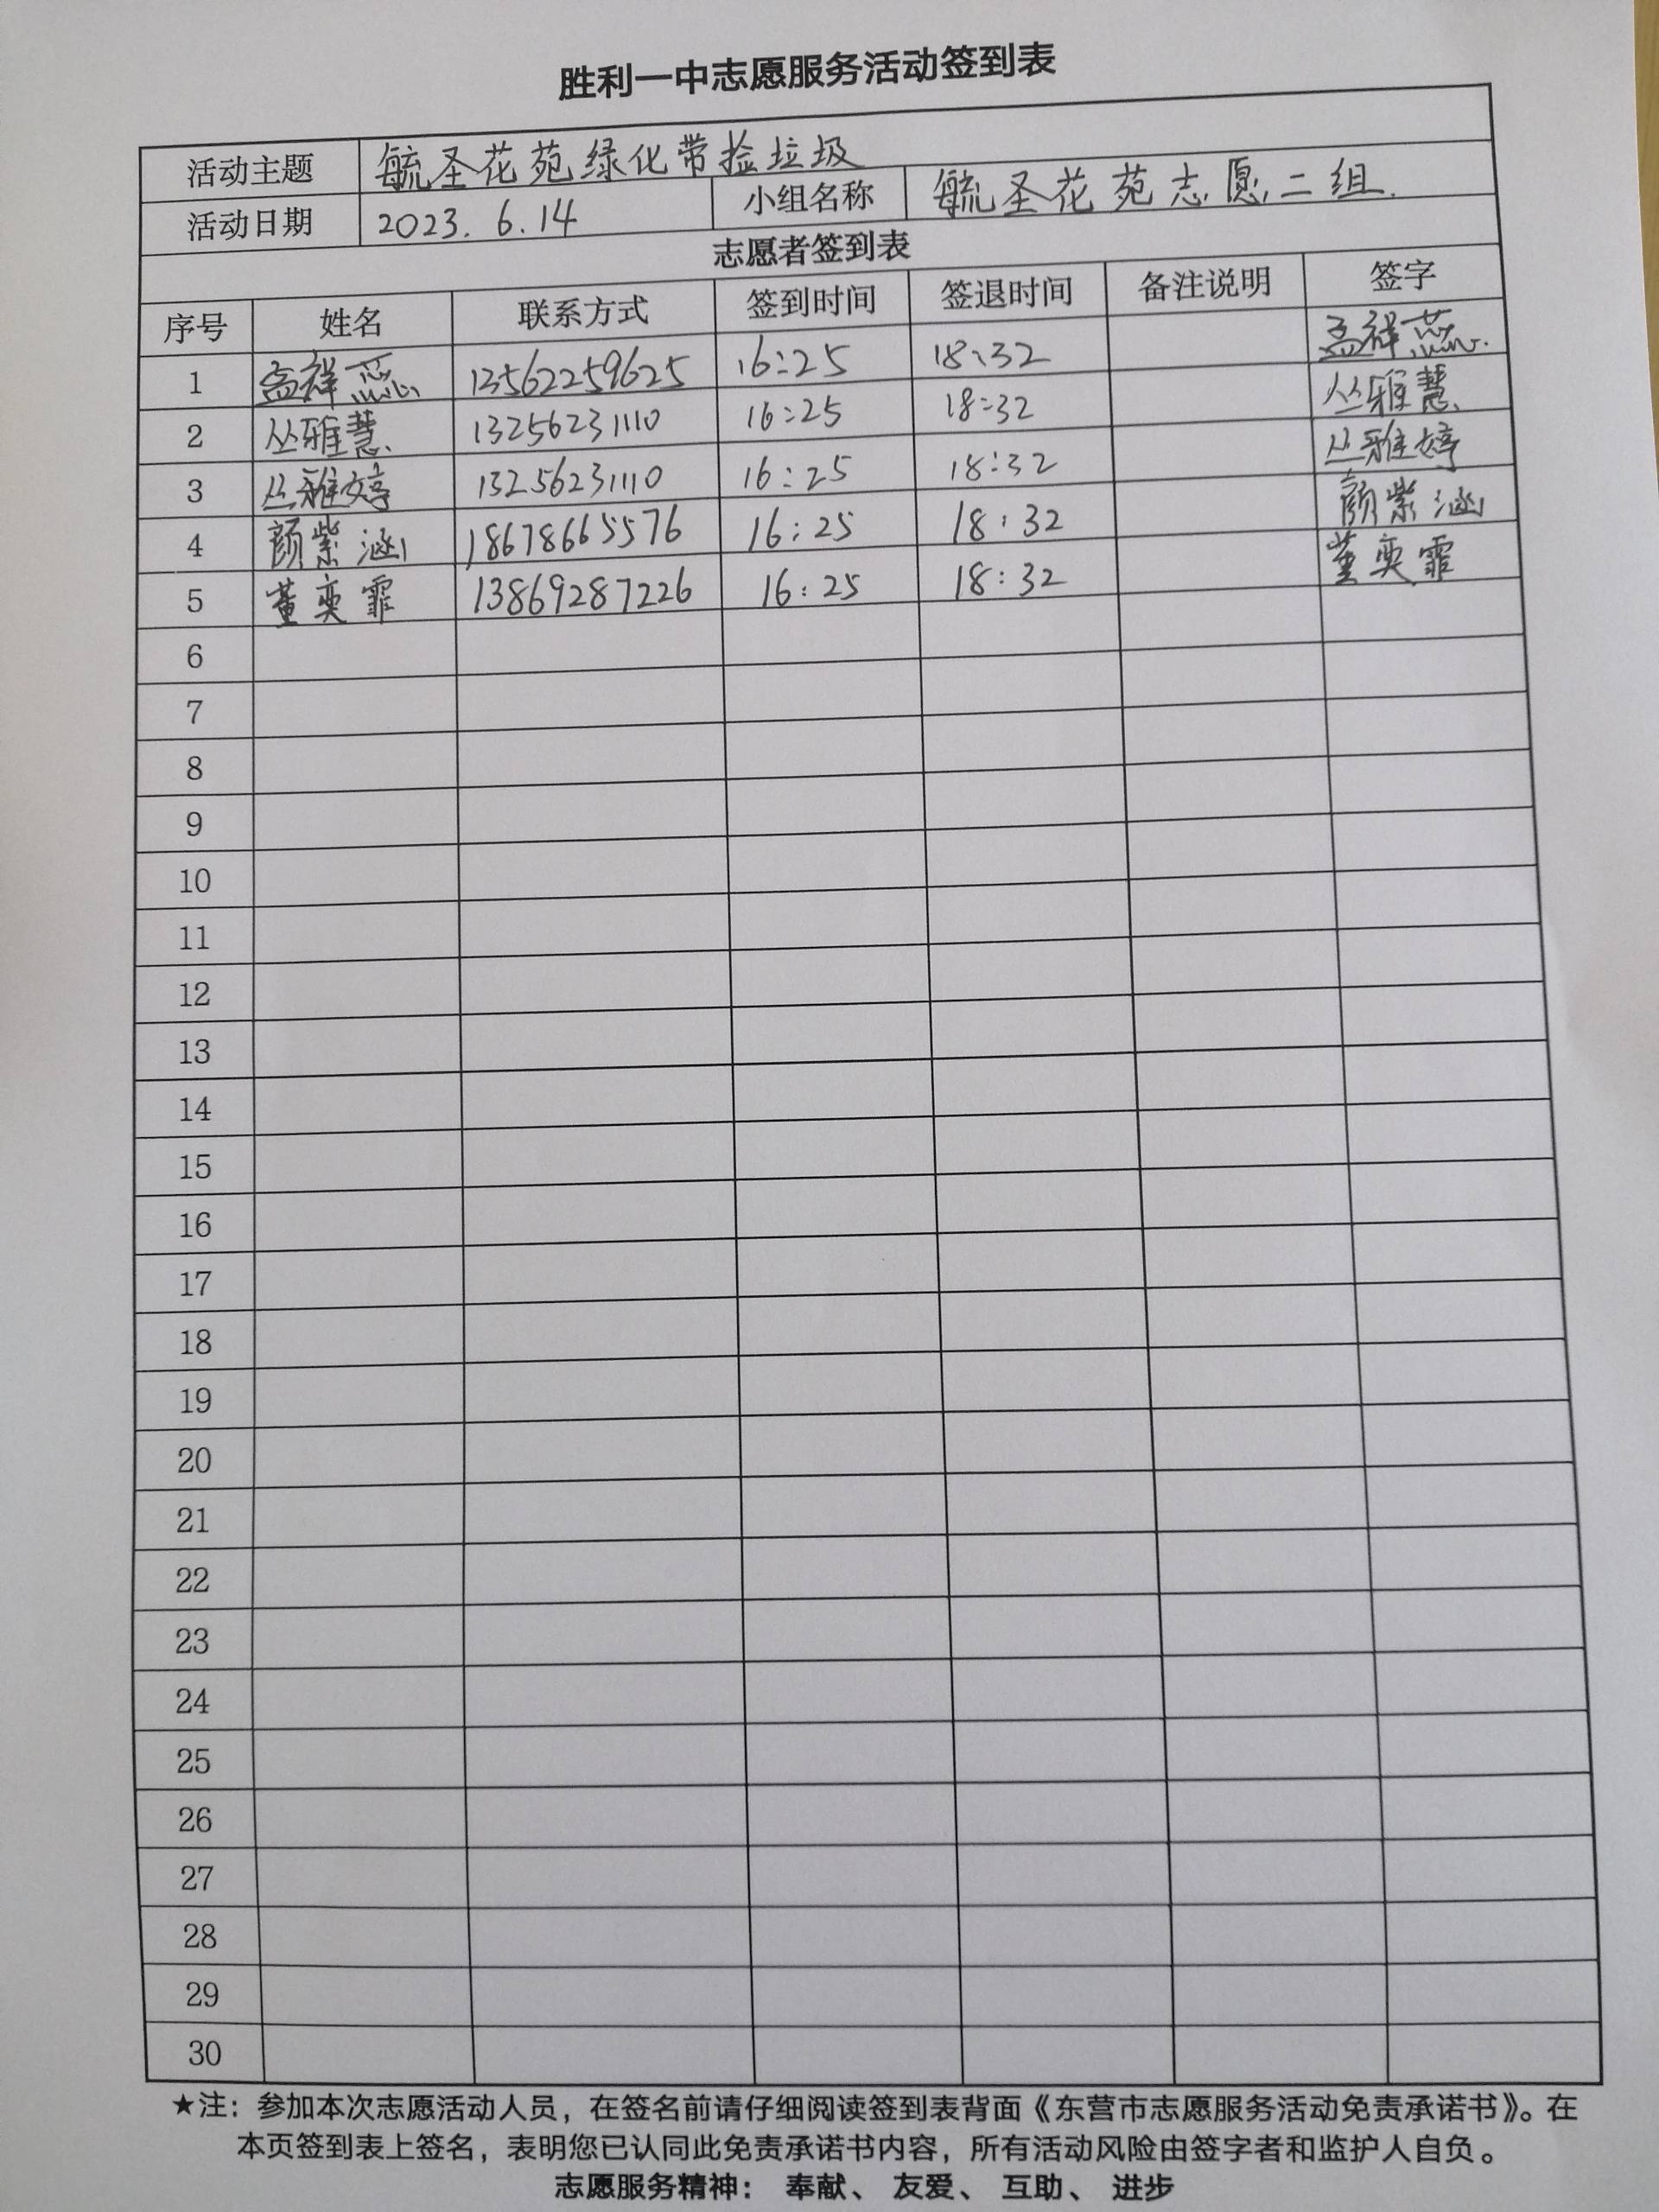 胜利一中志愿服务活动签到表
活动主题 毓圣花苑绿化带捡垃圾
活动日期 2023.6.14 小组名称 毓圣花苑志愿二组.
志愿者签到表
序号 姓名 联系方式 签到时间 签退时间 备注说明 签字
1 孟祥蕊 13562259625 16:25 18:32 孟祥蕊
2 丛雅慧 13256231110 16:25 18:32 丛雅慧
3 丛雅婷 13256231110 16:25 18:32 丛雅婷
4 颜紫涵 18678665576 16:25 18:32 颜紫涵
5 董奕霏 13869287226 16:25 18:32 董奕霏
6
7
8
9
10
11
12
13
14
15
16
17
18
19
20
21
22
23
24
25
26
27
28
29
30
★注：参加本次志愿活动人员，在签名前请仔细阅读签到表背面《东营市志愿服务活动免责承诺书》。在
本页签到表上签名，表明您已认同此免责承诺书内容，所有活动风险由签字者和监护人自负。
志愿服务精神： 奉献、 友爱、 互助、 进步